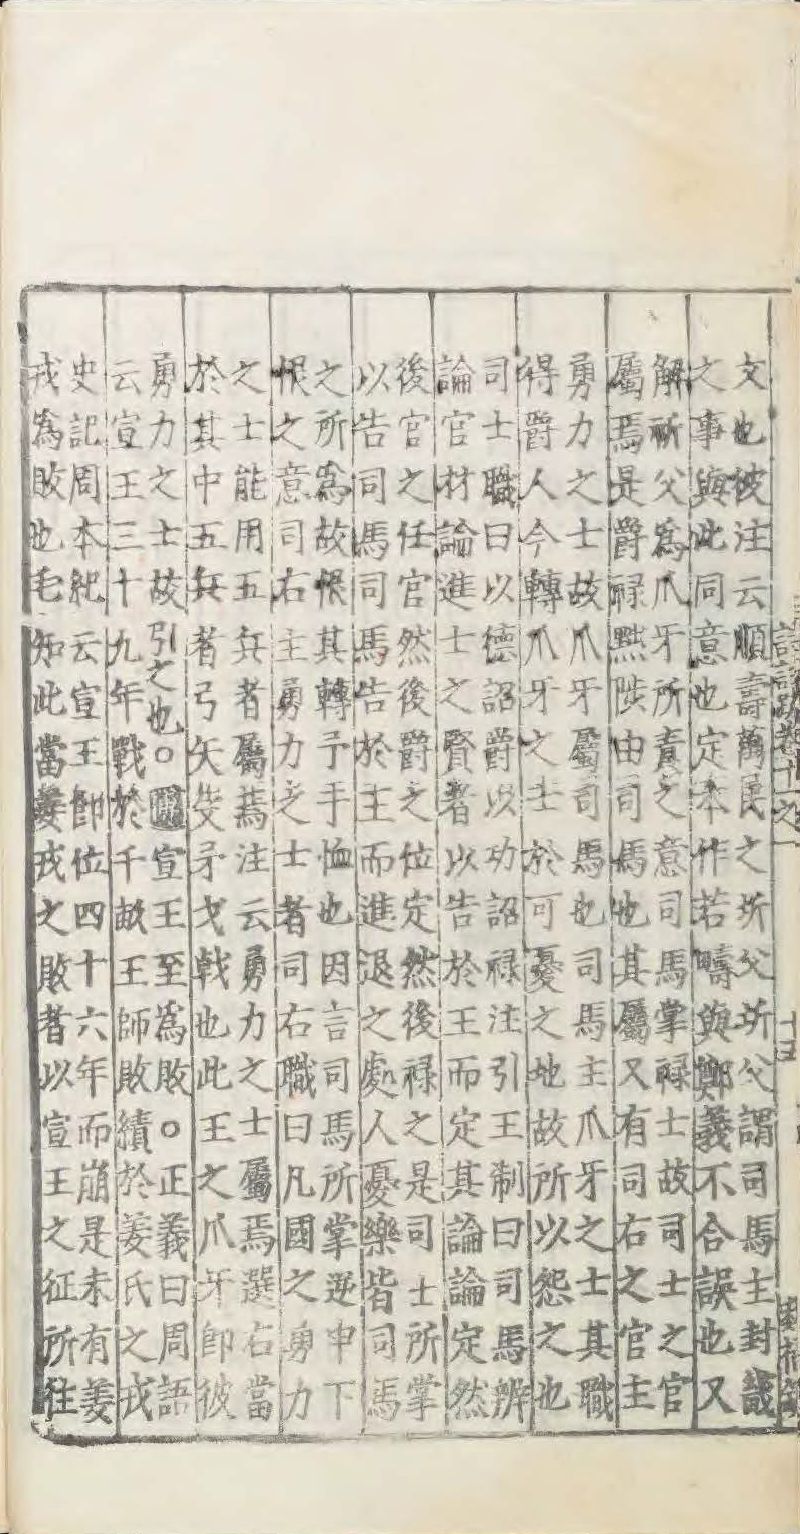 文也彼注云順壽萬民之圻父圻父謂司馬主封畿
之事與此同意也定本作若疇與鄭義不合誤也又
解祈父爲爪牙所責之意司馬掌祿士故司士之官
屬焉是爵祿黜陟由司馬也其屬又有司右之官主
勇力之士故爪牙屬司馬也司馬主爪牙之士其職
得爵人今轉爪牙之士於可憂之地故所以怨之也
司士職曰以德詔爵以功詔祿注引王制曰司馬辨
論官材論進士之賢者以告於王而定其論論定然
後官之任官然後爵之位定然後祿之是司士所掌
以告司馬司馬告於王而進退之處人憂樂皆司馬
之所爲故恨其轉予于恤也因言司馬所掌逆申下
恨之意司右主勇力之士者司右職曰凡國之勇力
之士能用五兵者屬焉注云勇力之士屬焉選右當
於其中五兵者弓矢殳矛戈戟也此王之爪牙卽彼
勇力之士故引之也○宣王至爲敗○正義曰周語
云宣王三十九年戰於千畝王師敗績於姜氏之戎
史記周本紀云宣王卽位四十六年而崩是未有姜
戎爲敗也毛知此當姜戎之敗者以宣王之征所往
十五